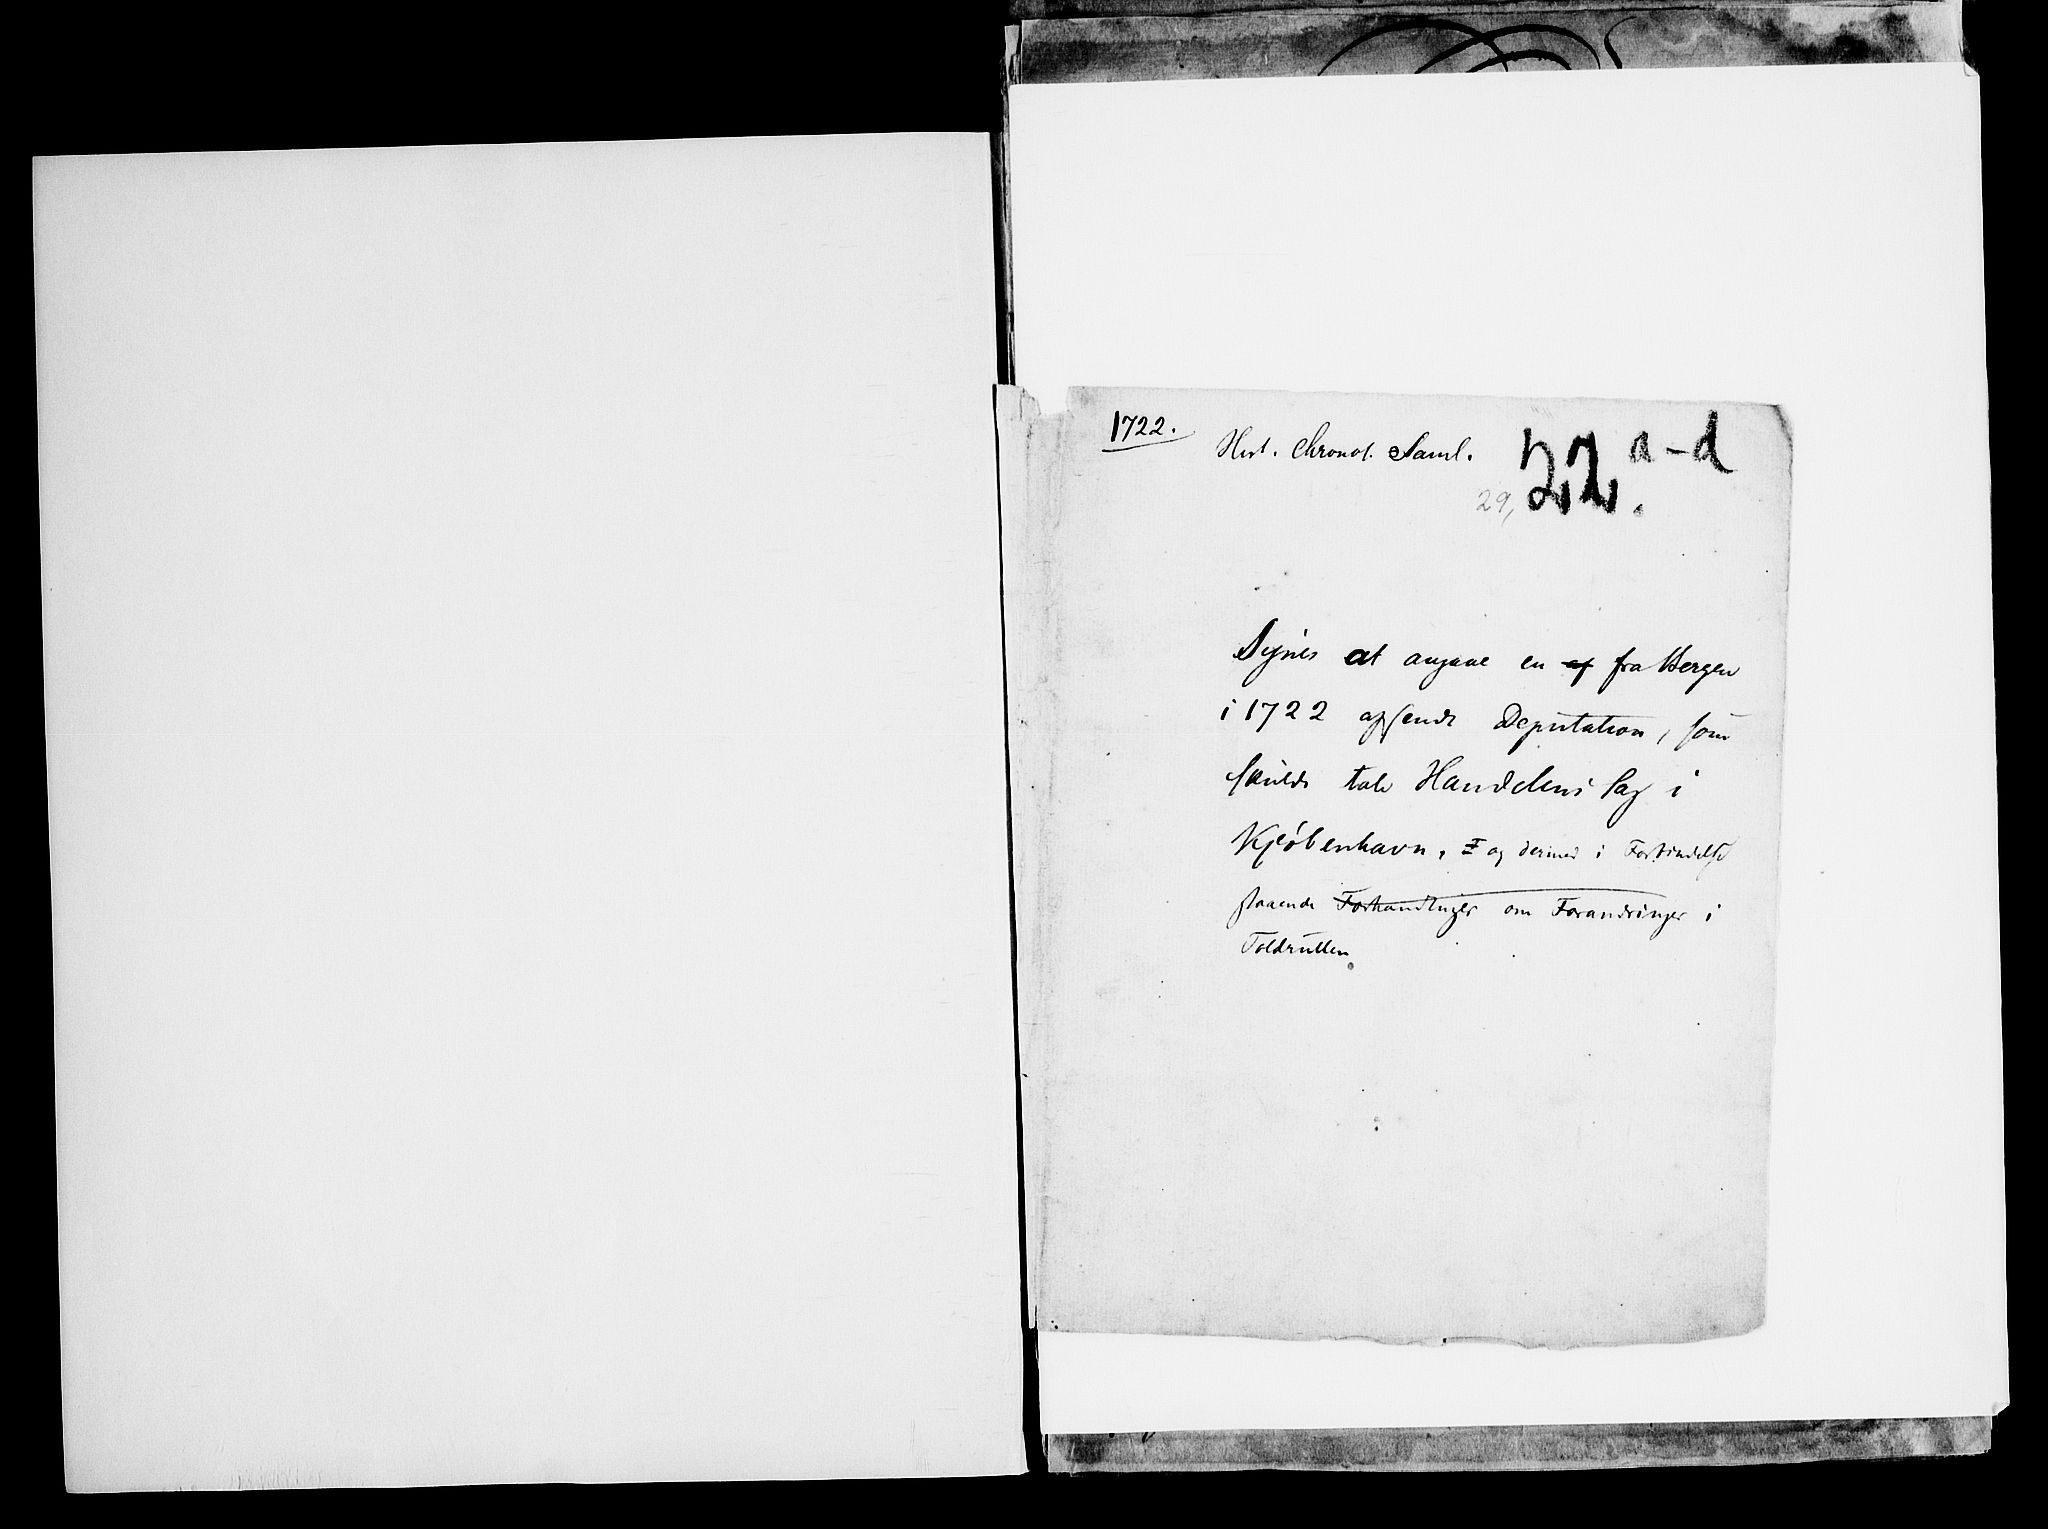 1722.
Hist. Chronol. Saml. 22 a-d
29,
Synes at angaae en af fra Bergen
i 1722 afsendt Deputation, som
skulde tale Handelens Sag i
Kjöbenhavn, og dermed i Forbindelse
staaende Forhandlinger om Forandringer i
Toldrullen.